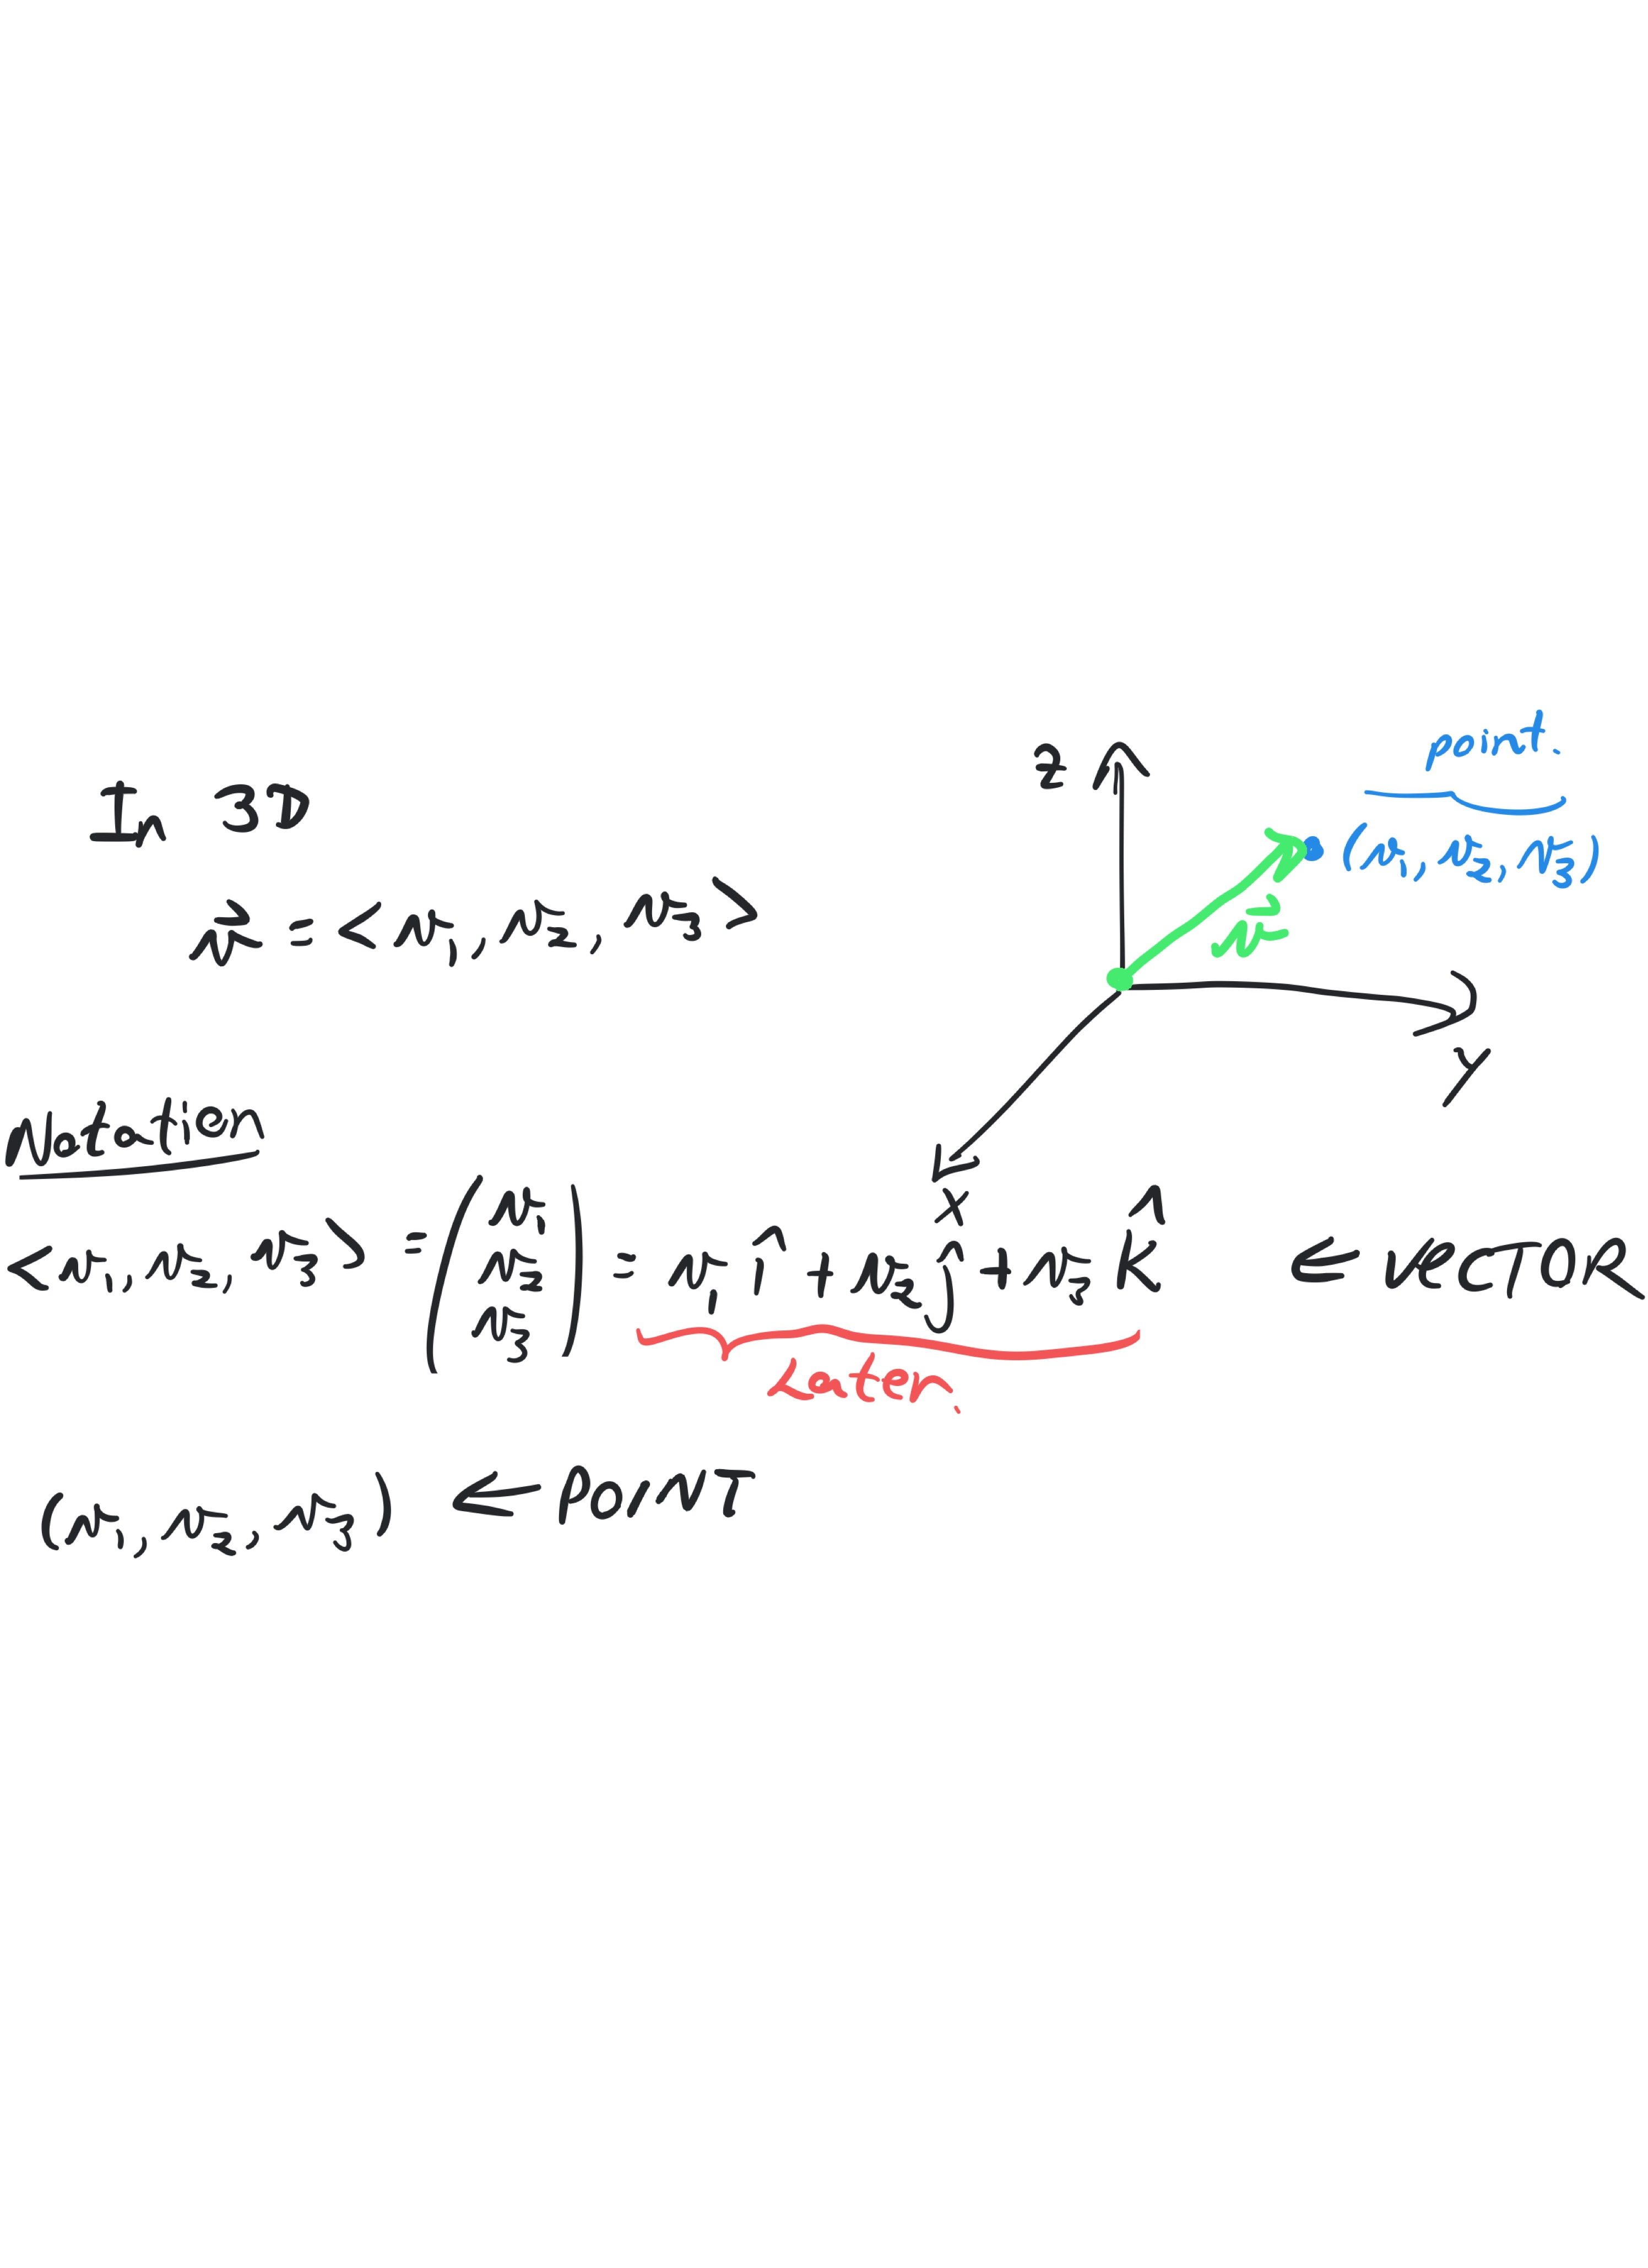 In 3D
v⃗ = <v₁, v₂, v₃>
z
point.
(v₁, v₂, v₃)
v⃗
y
x
Notation
<v₁, v₂, v₃> = (v₁ v₂ v₃) = v₁ î + v₂ ĵ + v₃ k̂ ← VECTOR
Later.
(v₁, v₂, v₃) ← POINT